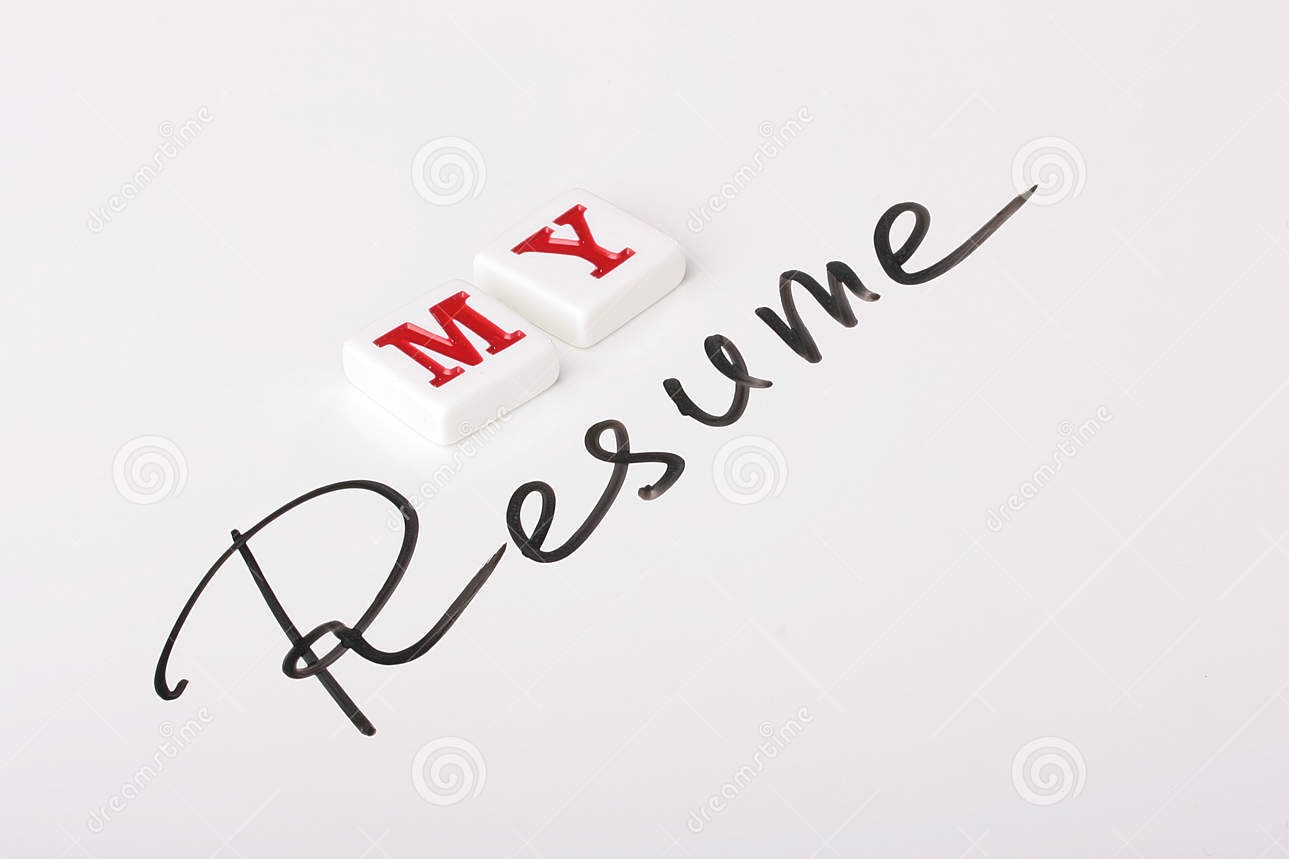 MY
Resume
dreamstime
dreamstime
dreamstime
dreamstime
dreamstime
dreamstime